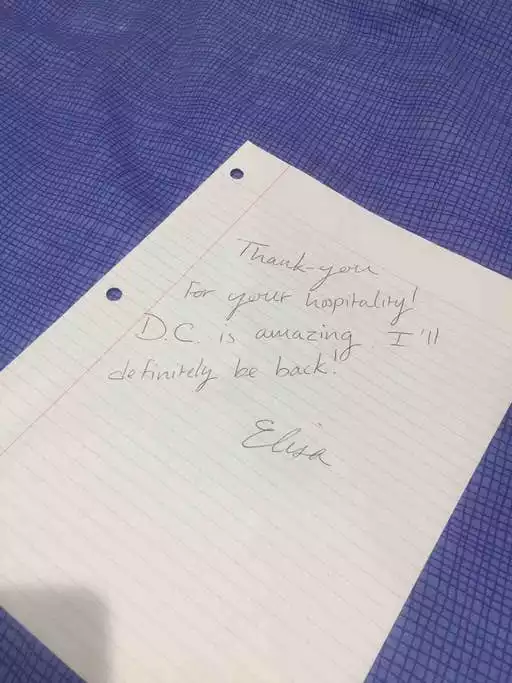 Thank-you
for your hospitality!
D.C. is amazing. I'll
definitely be back!
Elisa